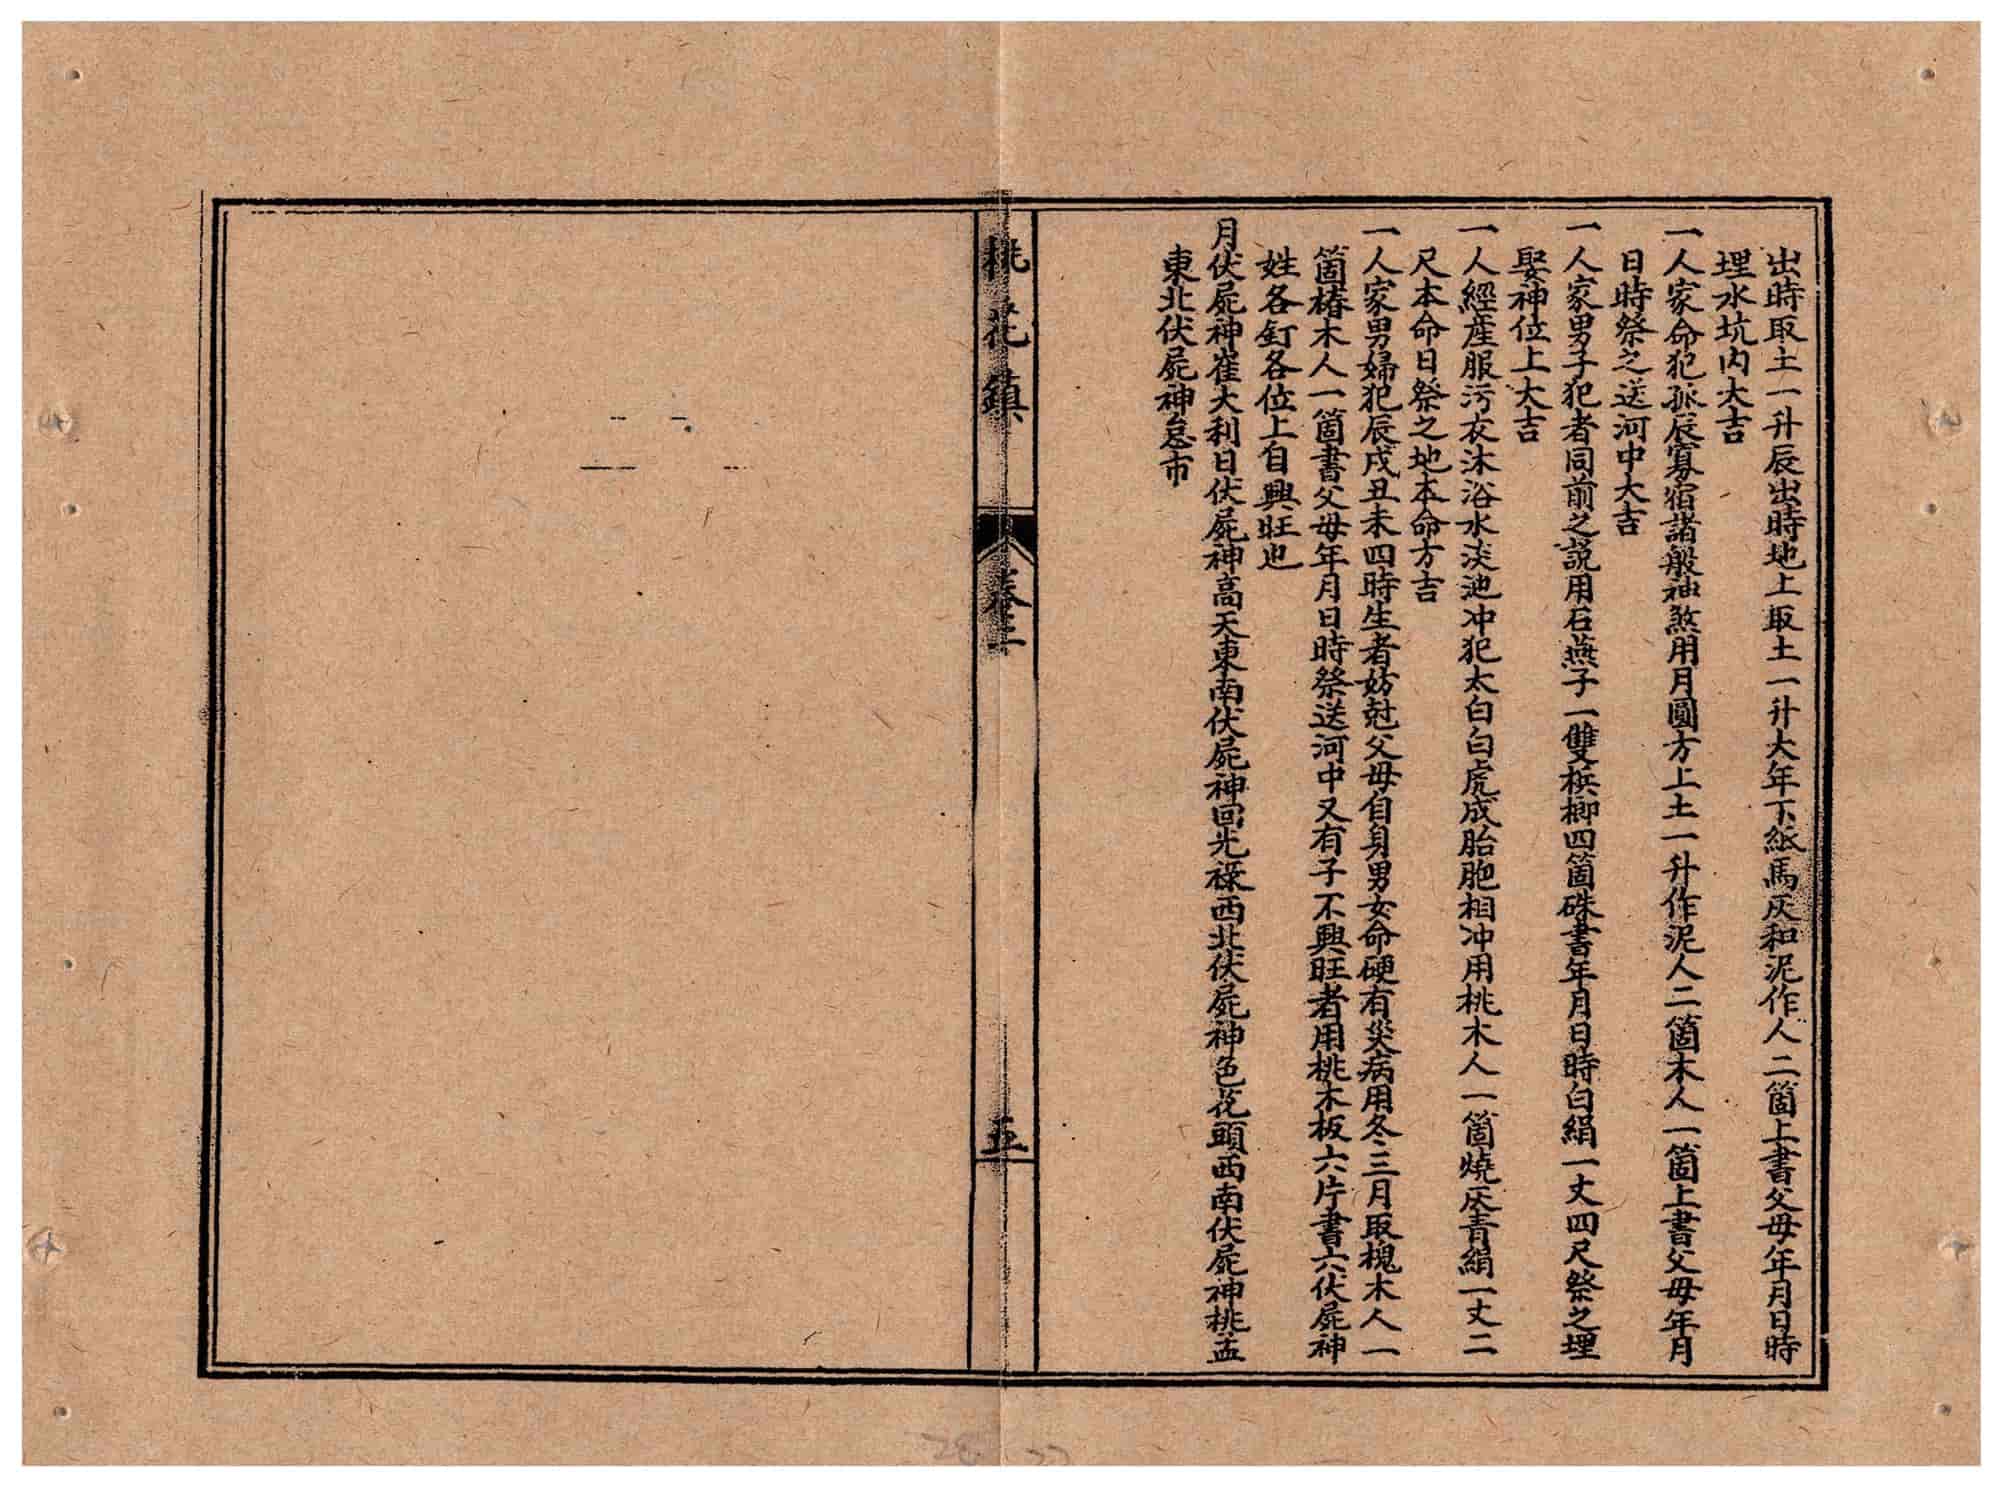 出時取土一升辰出時地上取土一升大年下紙馬灰和泥作人二箇上書父母年月日時
埋水坑内大吉
一人家命犯孤辰寡宿諸般神煞用月圓方上土一升作泥人二箇木人一箇上書父母年月
日時祭之送河中大吉
一人家男子犯者同前之説用石燕子一雙梹榔四箇硃書年月日時白絹一丈四尺祭之埋
娶神位上大吉
一人經產服污衣沐浴水淡池冲犯太白白虎成胎胞相冲用桃木人一箇燒灰青絹一丈二
尺本命日祭之地本命方吉
一人家男婦犯辰戌丑未四時生者妨尅父母自身男女命硬有災病用冬三月取槐木人一
箇椿木人一箇書父母年月日時祭送河中又有子不興旺者用桃木板六片書六伏屍神
姓各釘各位上自興旺也
月伏屍神崔大利日伏屍神高天東南伏屍神回光祿西北伏屍神色花頭西南伏屍神桃孟
東北伏屍神怠市
桃花鎮
卷三
五